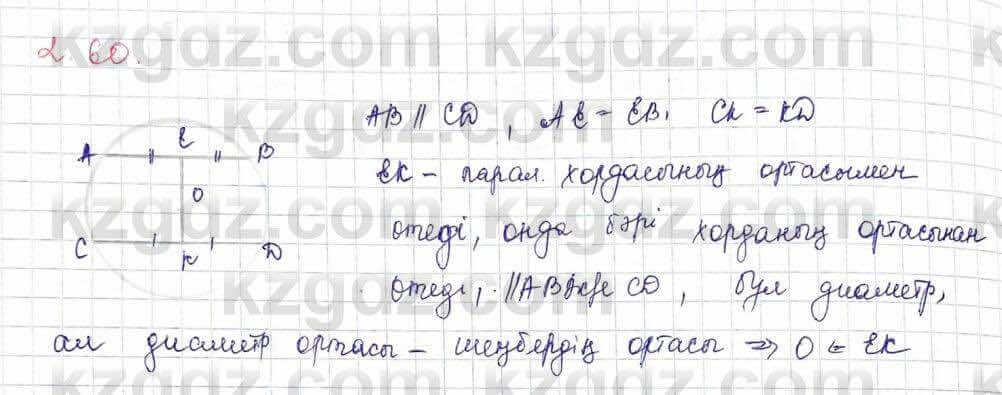 2.60.
AB || CD, AE = EB, CK = KD
EK – парал. хордасының ортасымен
өтеді, онда бәрі хорданың ортасынан
өтеді, || AB және CD, бұл диаметр,
ал диаметр ортасы – шеңбердің ортасы => O ∈ EK
A E B
O
C K D
kzgdz.com